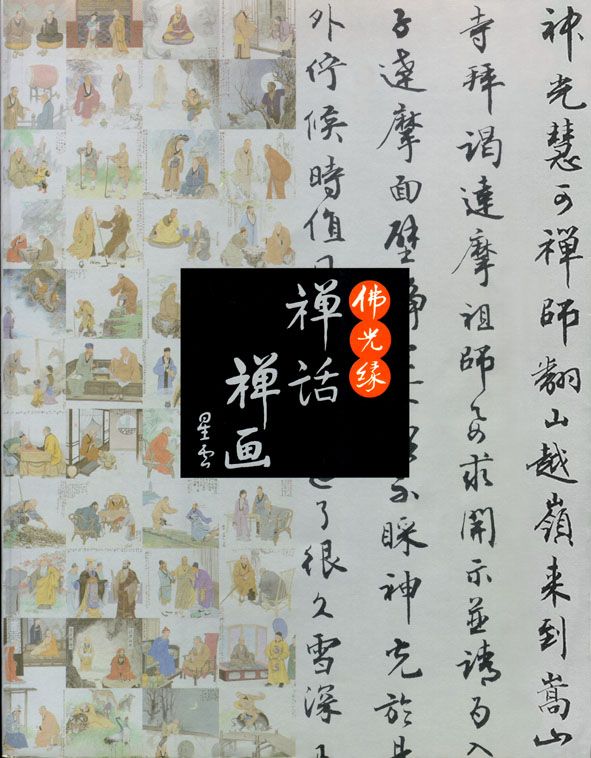 神光慧可禪師翻山越嶺来到嵩山
寺拜謁達摩祖師要求開示並請為入
子達摩面壁静
不睬神光於是
外佇候時值
了很久雪深
佛光缘
禅话
禅画
星雲